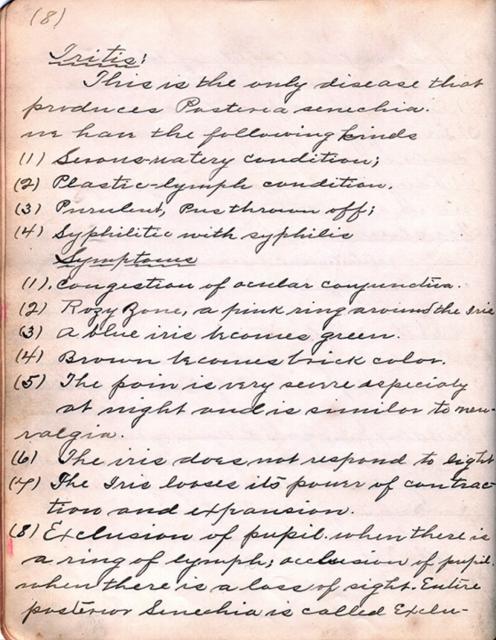 (8)
Iritis:
This is the only disease that
produces Posteria senechia.
we have the following kinds
(1) Serous-watery condition;
(2) Plastic-lymph condition.
(3) Purulent, Pus thrown off;
(4) Syphilitic with syphilis
Symptoms
(1). Congestion of ocular conjunctiva.
(2) Rozy Zone, a pink ring around the Iris
(3) A blue iris becomes green.
(4) Brown becomes brick color.
(5) The pain is very severe especialy
at night and is similar to neu-
ralgia.
(6) The iris does not respond to light
(7) The Iris looses its power of contrac-
tion and expansion.
(8) Exclusion of pupil. when there is
a ring of lymph; occlusion of pupil.
when there is a loss of sight. Entire
posterior Senechia is called Exclu-